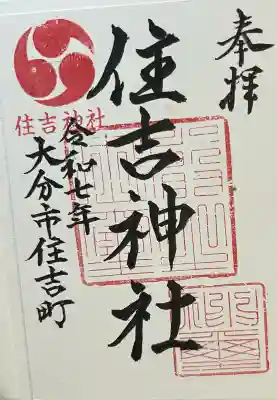 奉拝
住吉神社
住吉神社
令和七年
大分市住吉町